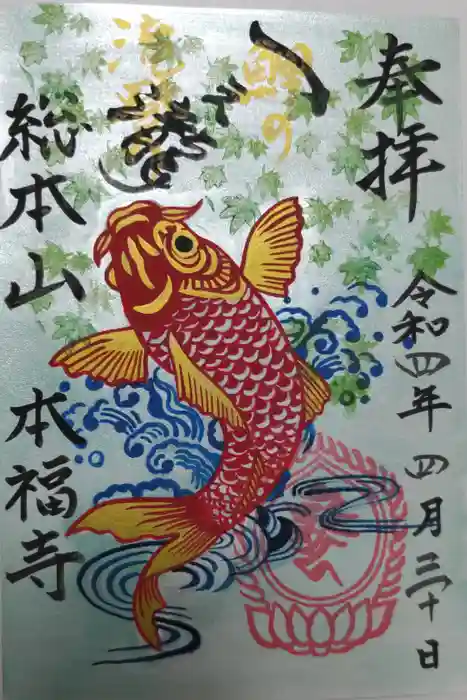 奉拝
令和四年 四月三十日
鯉の
総本山 本福寺